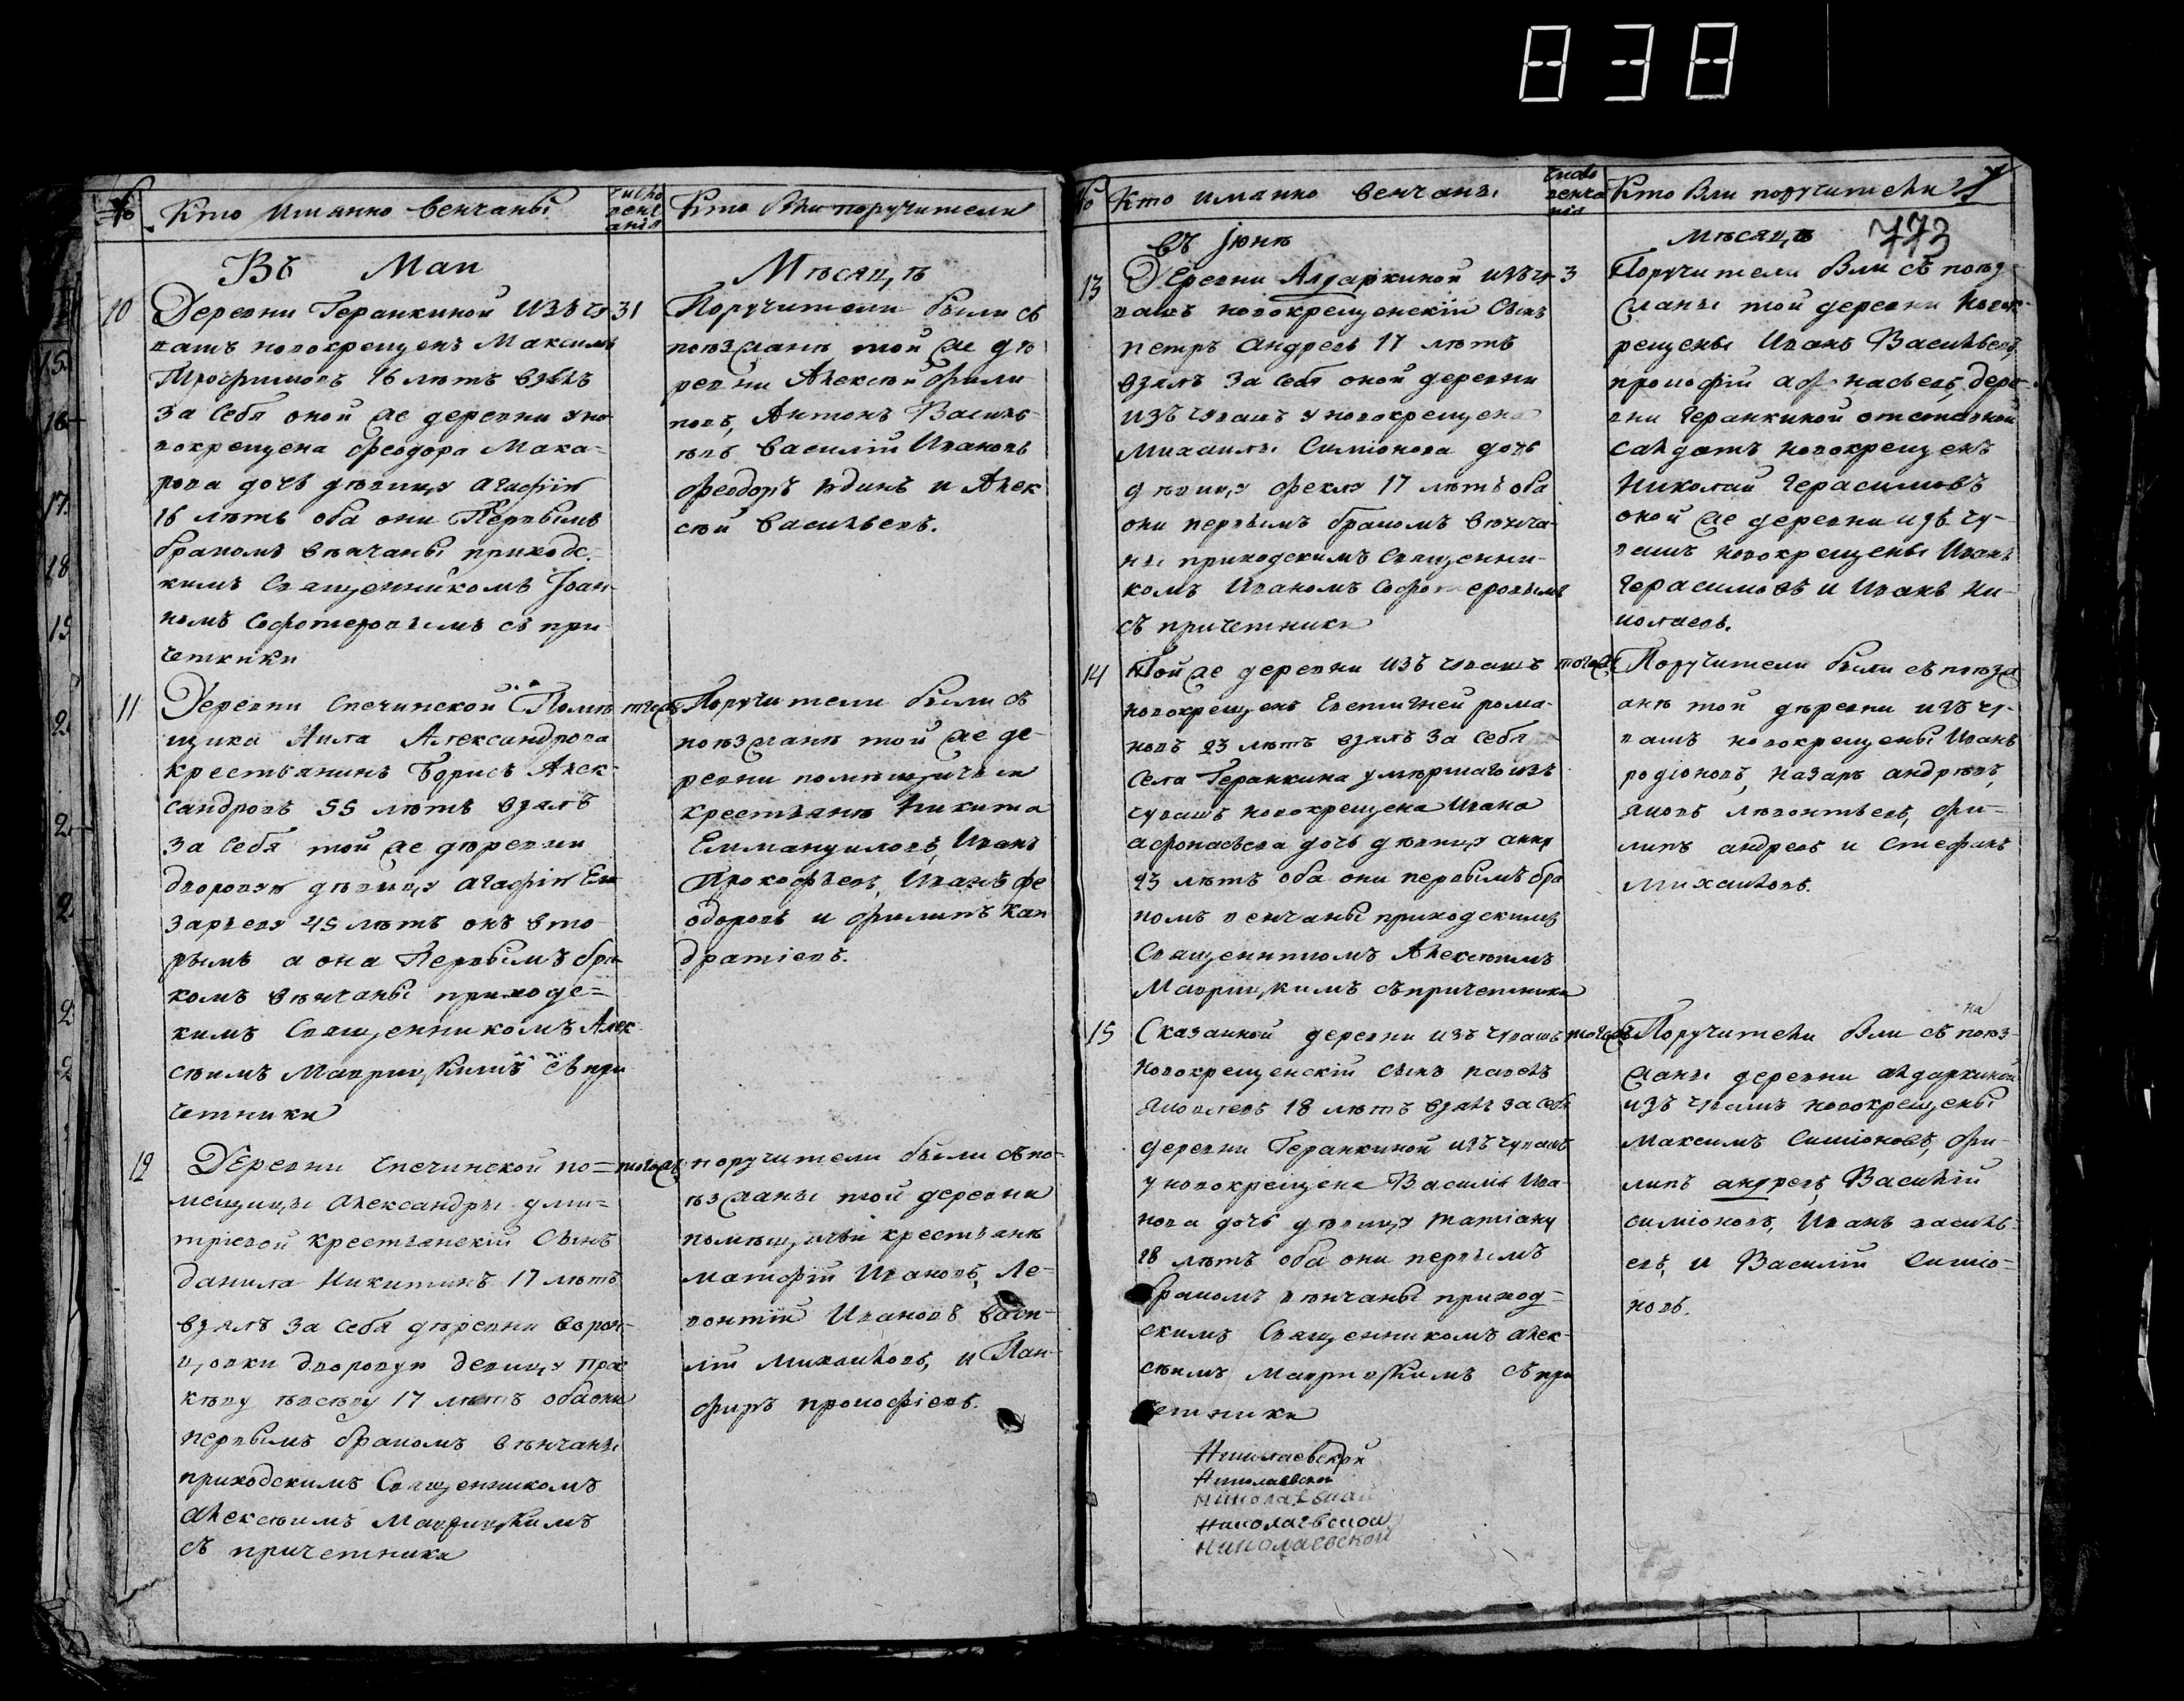 838
№ Кто Имянно венчаны число венч анiя Кто Были поручители
Въ Маи Мѣсяцѣ
10
Деревни Геранкиной изъ чу
вашъ новокрещенъ Максимъ
Трофимовъ 16 лѣтъ взялъ
за себя оной же деревни у но
вокрещена Феодора Мака=
рова дочь дѣвицу Агафiю
16 лѣтъ оба они Первымъ
бракомъ вѣнчаны приходс-
кимъ Священникомъ Iоан-
номъ Софотеровымъ съ при-
четники
31
Поручители были съ
поѣзжанѣ той же дѣ
ревни Алексѣй Фили
повъ, Антонъ Василь-
евъ Василiй Ивановъ
Феодоръ Юдинъ и Алек
сѣй Васильевъ.
11
Деревни Спечинской Помѣ
щика Нила Александрова
крестьянинъ Борисъ Алек-
сандровъ 55 лѣтъ взялъ
за себя той же дѣревни
дворовую дѣвицу Агафiю Ела
зарьеву 45 лѣтъ онъ вто
рымъ а она Первымъ бра
комъ вѣнчаны приходс=
кимъ Священникомъ Алек
сѣимъ Маврицкимъ съ при
четники
тогожъ
Поручители были съ
поѣзжанѣ той же де-
ревни помѣщичьи
крестьянѣ Никита
Еммануиловъ, Иванъ
Прокофьевъ, Иванъ Фе
одоровъ и Филипъ Кан
дратiевъ.
12
Деревни Спечинской по=
мещицы Александры дми=
трiевой крестьянскiй Сынъ
данила Никитинъ 17 лѣтъ
взялъ за себя дѣревни ворон-
цовки дворовую девицу Прас
кѣву 17 лѣтъ оба они
первымъ бракомъ вѣнчаны
приходскимъ Священникомъ
Алексѣимъ Маврицкимъ
съ причетники
тогожъ
поручители были съ по-
ѣзжаны той деревни
помѣщичьи крестьянѣ
Матофiй Ивановъ, Ле-
вонтiй Ивановъ Васи-
лiй Михаиловъ, и Пан-
фиръ прокофiевъ.
№ Кто имянно венчаны число венча нiя Кто Были поручители 7
773
въ Iюнѣ Мѣсяцѣ
13
Деревни Алдаркиной изъ чу
вашъ новокрещенскiй Сынъ
Петръ Андреевъ 17 лѣтъ
взялъ за себя оной деревни
изъ чувашъ у новокрещена
Михаилы Симiонова дочь
дѣвицу Феклу 17 лѣтъ оба
они первымъ бракомъ вѣнча-
ны приходскимъ Священни-
комъ Иваномъ Софотеровымъ
съ причетники
3
Поручители Были съ поѣз-
жаны той деревни новок-
рещены Иванъ Васильевъ
прокофiй афонасьевъ, дере-
вни Геранкиной отставной
салдатъ новокрещенъ
Николай Герасимовъ
оной же деревни изъ чу-
вашъ новокрещены Иванъ
Герасимовъ и Иванъ Ни-
колаевъ.
14
Той же деревни изъ чувашъ
новокрещенъ Евстигней рома-
новъ 23 лѣтъ взялъ за себя
Села Геранкина умѣршаго изъ
чувашъ новокрещена Ивана
афонасьева дочь дѣвицу анну
23 лѣтъ оба они первымъ бра
комъ венчаны приходскимъ
Священникомъ Алексѣимъ
Маврицкимъ съ причетники
тогожъ
Поручители были съ поѣзж
анѣ той дѣревни изъ чу-
вашъ новокрещены Иванъ
родiоновъ, Назаръ андрѣевъ,
Яковъ лѣвонтьевъ, фи-
липъ андреевъ и Стефанъ
Михаиловъ.
15
Сказанной деревни изъ чувашъ
новокрещенскiй сынъ павелъ
Яковлевъ 18 лѣтъ взялъ за себя
деревни Геранкиной изъ чувашъ
у новокрещена Василья Ива-
нова дочь дѣвицу татiану
18 лѣтъ оба они первымъ
бракомъ вѣнчаны приход=
скимъ Священникомъ алек-
сѣимъ Маврицкимъ съ при
четники
тогожъ
Поручители Были съ поѣз-
жаны деревни алдаркиной
изъ чувашъ новокрещены
Максимъ Симiоновъ, фи-
липъ андреевъ, Василiй
симiоновъ, Иванъ василь-
евъ, и Василiй Симiо=
новъ.
Николаевской
Николаевской
Николаевской
Николаевской
Николаевской